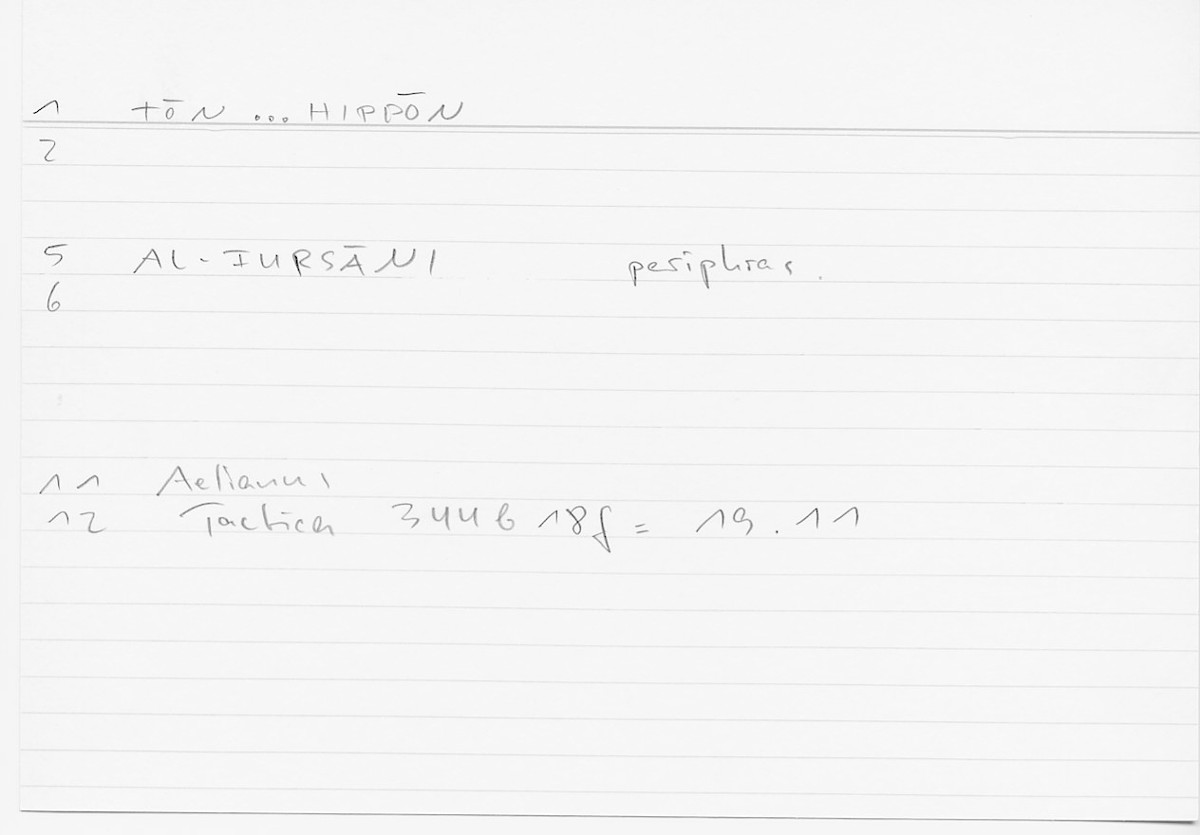 1 TŌN ... HIPPŌN
2
5 AL-FURSĀNI periphras.
6
11 Aelianus
12 Tactica 344b 18f = 19.11